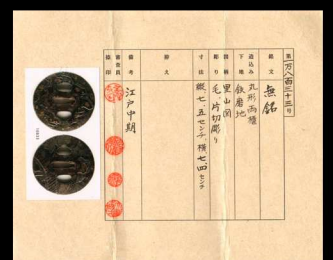 第一万八百三十三号
銘文
無銘
造込み
丸形両櫃
下地
鉄磨地
図柄
里山図
彫り
毛、片切彫り
寸法
縦七、五センチ、横七、四センチ
押え
備考
江戸中期
審査員